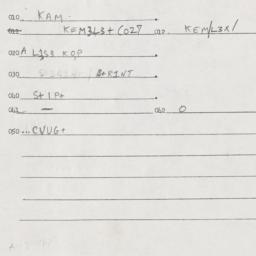 010. KAM.
KEM3L3+C0Z7 012. KEM/L3X/
020A L3S3 KOP
030. B+RINT
040 S+IP+
042. — 060. O
050...CVUG+